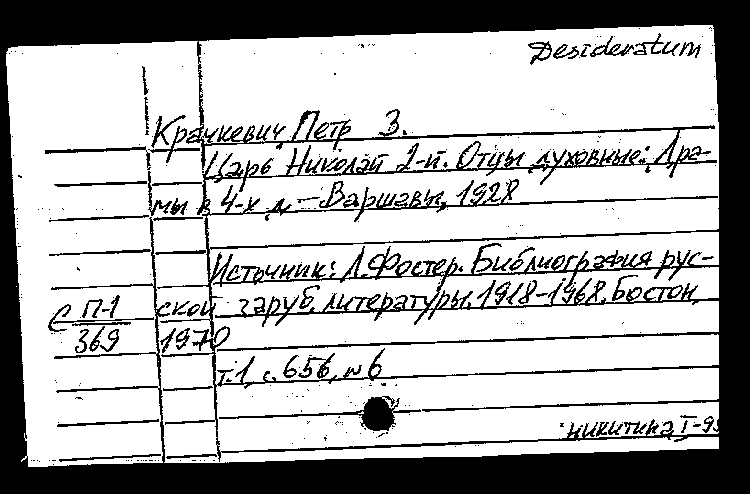 Desideratum
Крачкевич Петр З.
Царь Николай 2-й. Отцы духовные: Дра-
мы в 4-х д. - Варшавы, 1928
Источник: Л. Фостер. Библиография рус-
ской заруб. литературы. 1918-1968. Бостон,
1970
С П-1
369
т.1, с. 656, №6
Никитина I-95